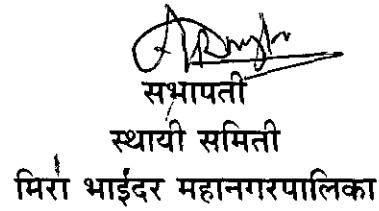 सभापती
स्थायी समिती
मिरा भाईंदर महानगरपालिका